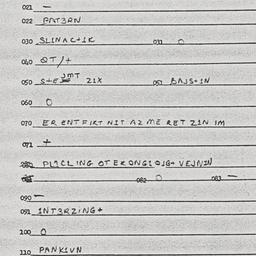 021 —
022 PAT3RN
030 SLINAC+IK 031 O
040 QT/+
050 S+E 3MT 21X 051 BAJS+IN
060 O
070 ER ENT FIRT NIT AZ ME RET ZIN IM
071 +
PLACLING OT EKONG
082 O 083 —
090 —
091 INT3RZING+
100 O
110 PANKIVN